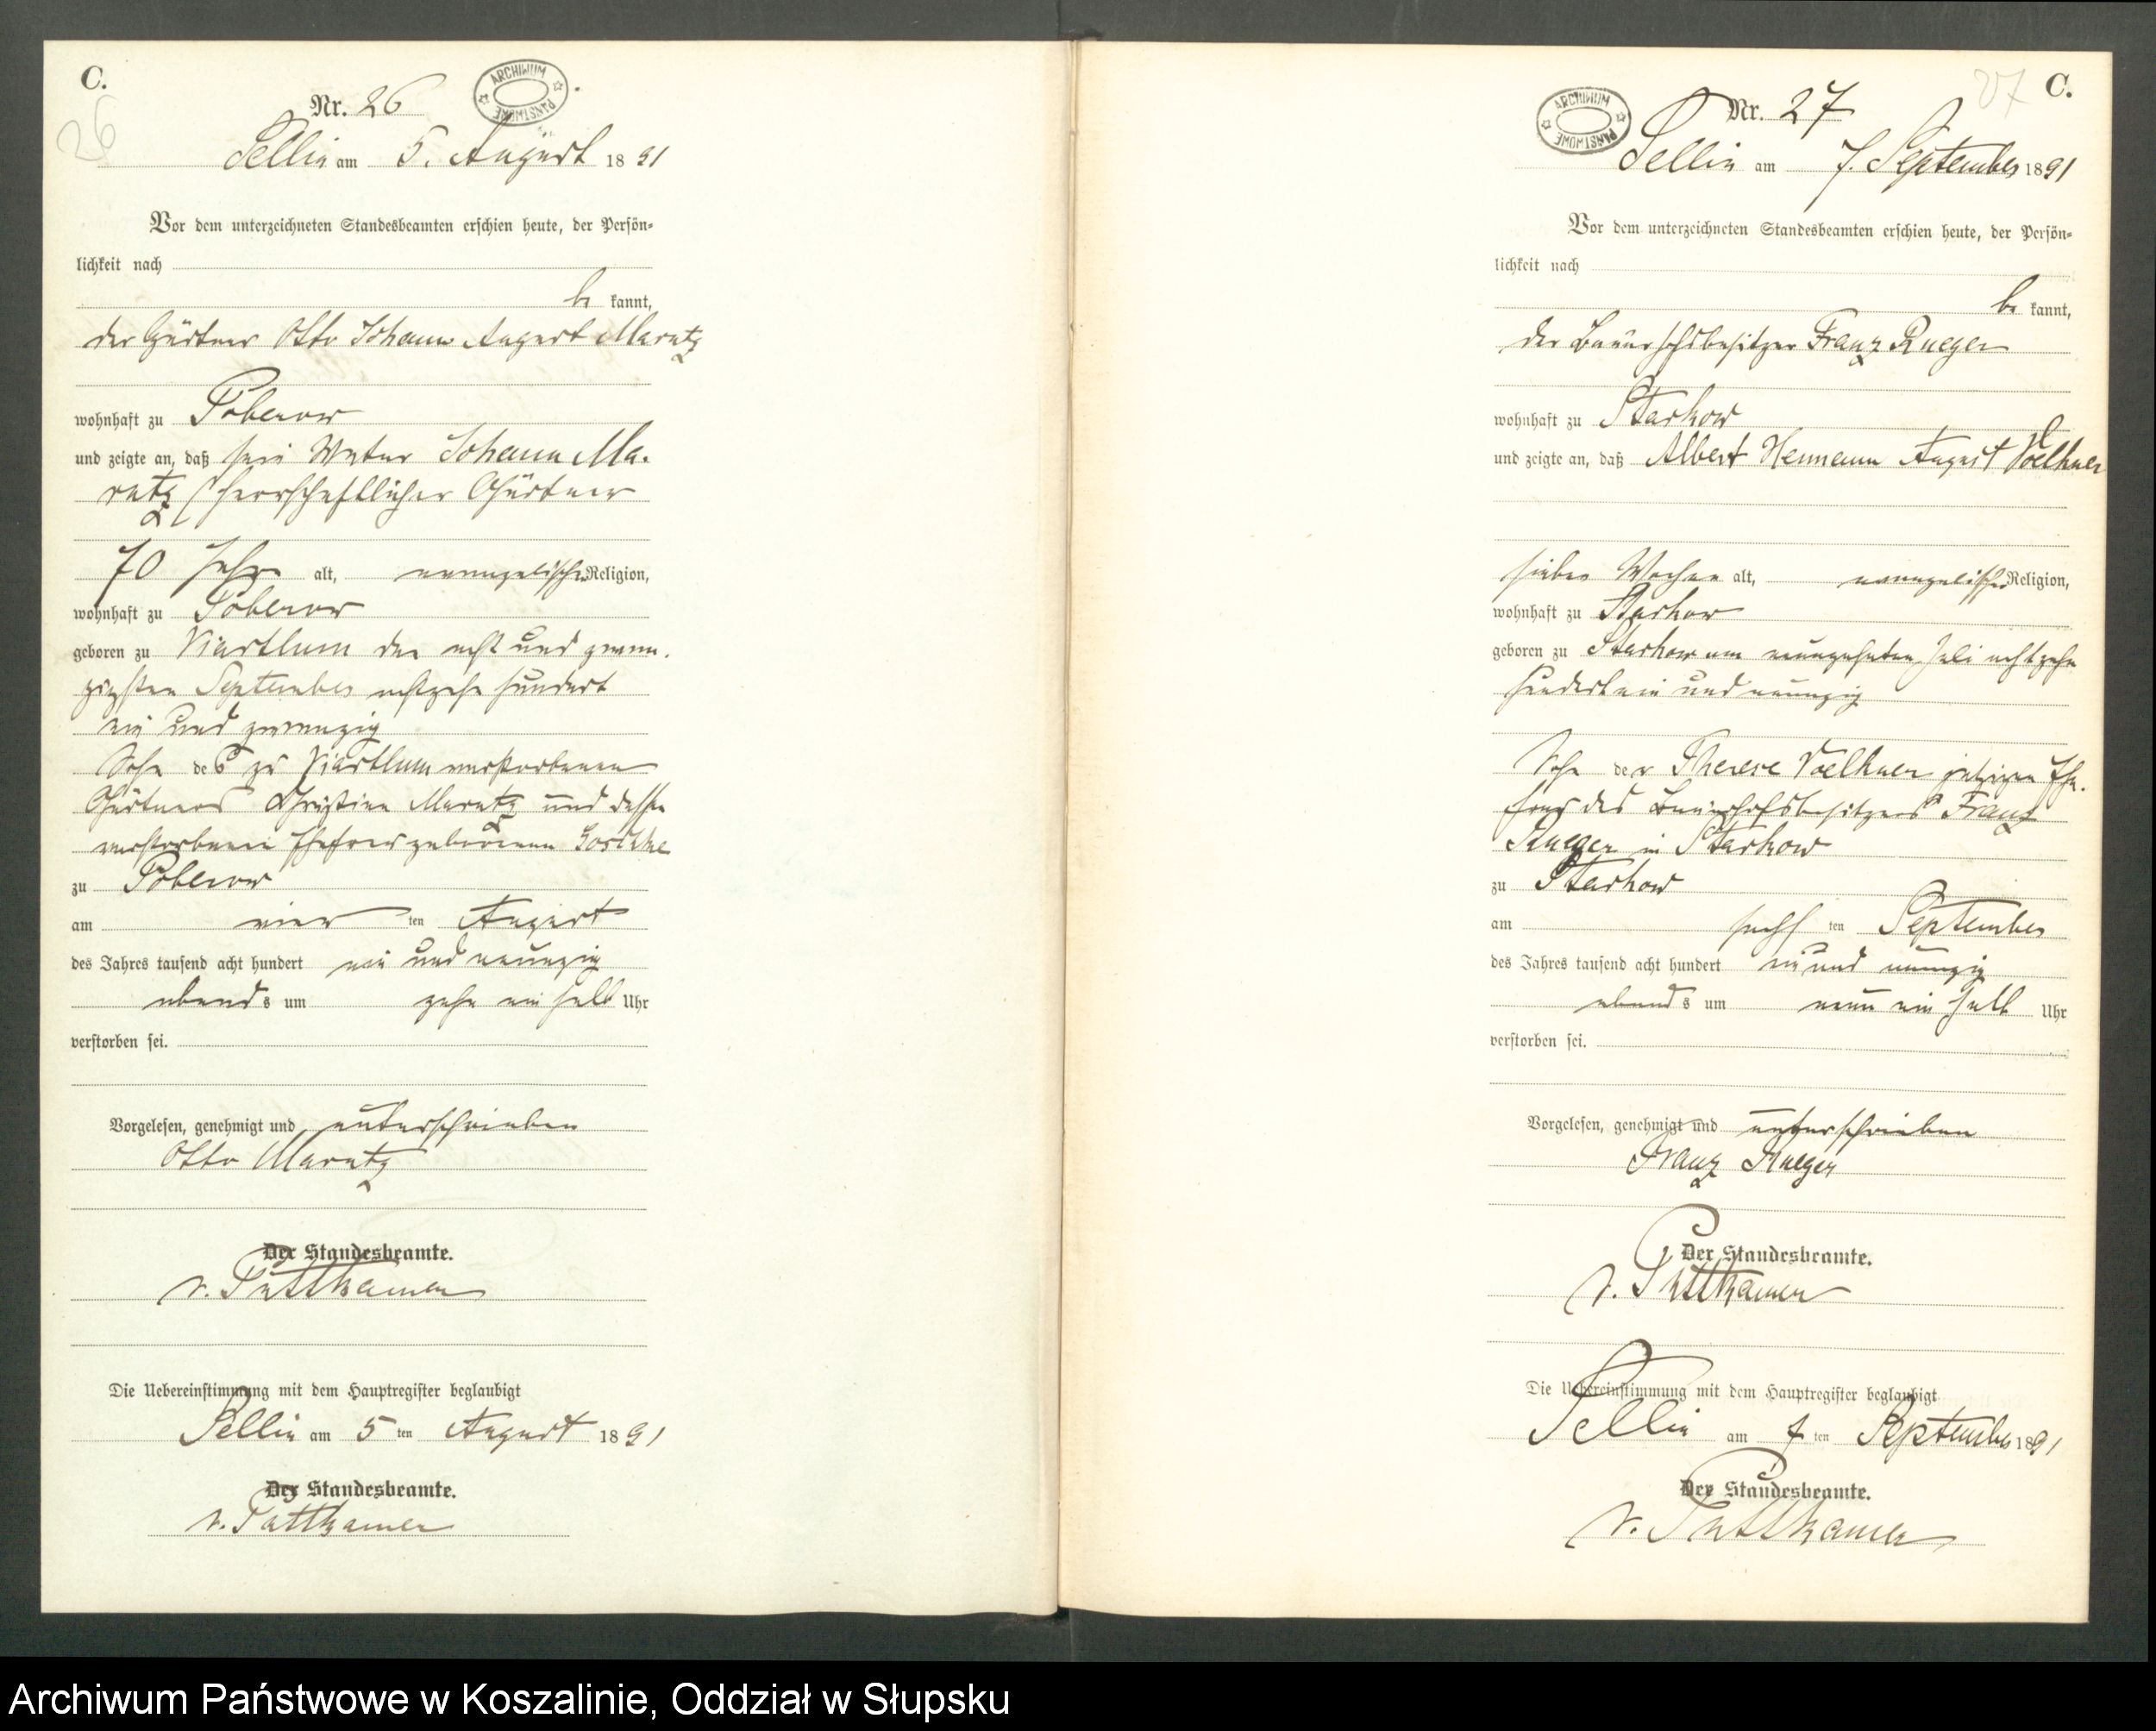 C.
26
Nr. 26
ARCHIWUM PAŃSTWOWE
Sellin am 5. August 1891
Vor dem unterzeichneten Standesbeamten erschien heute, der Persön-
lichkeit nach
be kannt,
der Gärtner Otto Johann August Maratz
wohnhaft zu Poberow
und zeigte an, daß sein Vater Johann Ma-
ratz herrschaftlicher Gärtner
70 Jahr alt, evangelischer Religion,
wohnhaft zu Poberow
geboren zu Viartlum den acht und zwan-
zigsten September achtzehn hundert
ein und zwanzig
Sohn des zu Viartlum verstorbenen
Gärtners Christian Maratz und dessen
verstorbenen Ehefrau geborenen
zu Poberow
am vier ten August
des Jahres tausend acht hundert ein und neunzig
abends um zehn ein halb Uhr
verstorben sei.
Vorgelesen, genehmigt und unterschrieben
Otto Maratz
Der Standesbeamte.
v. Puttkamer
Die Uebereinstimmung mit dem Hauptregister beglaubigt
Sellin am 5 ten August 1891
Der Standesbeamte.
v. Puttkamer
27 C.
Nr. 27
ARCHIWUM PAŃSTWOWE
Sellin am 7. September 1891
Vor dem unterzeichneten Standesbeamten erschien heute, der Persön-
lichkeit nach
be kannt,
der Bauerhofsbesitzer Franz Rueger
wohnhaft zu Starkow
und zeigte an, daß Albert Hermann August Voelkner
sieben Wochen alt, evangelischer Religion,
wohnhaft zu Starkow
geboren zu Starkow am neunzehnten Juli achtzehn
hundert ein und neunzig
Sohn der Therese Voelkner jetzigen Ehe-
frau des Bauerhofsbesitzers Franz
Rueger in Starkow
zu Starkow
am sechs ten September
des Jahres tausend acht hundert ein und neunzig
abends um neun ein halb Uhr
verstorben sei.
Vorgelesen, genehmigt und unterschrieben
Franz Rueger
Der Standesbeamte.
v. Puttkamer
Die Uebereinstimmung mit dem Hauptregister beglaubigt
Sellin am 7 ten September 1891
Der Standesbeamte.
v. Puttkamer
Archiwum Państwowe w Koszalinie, Oddział w Słupsku